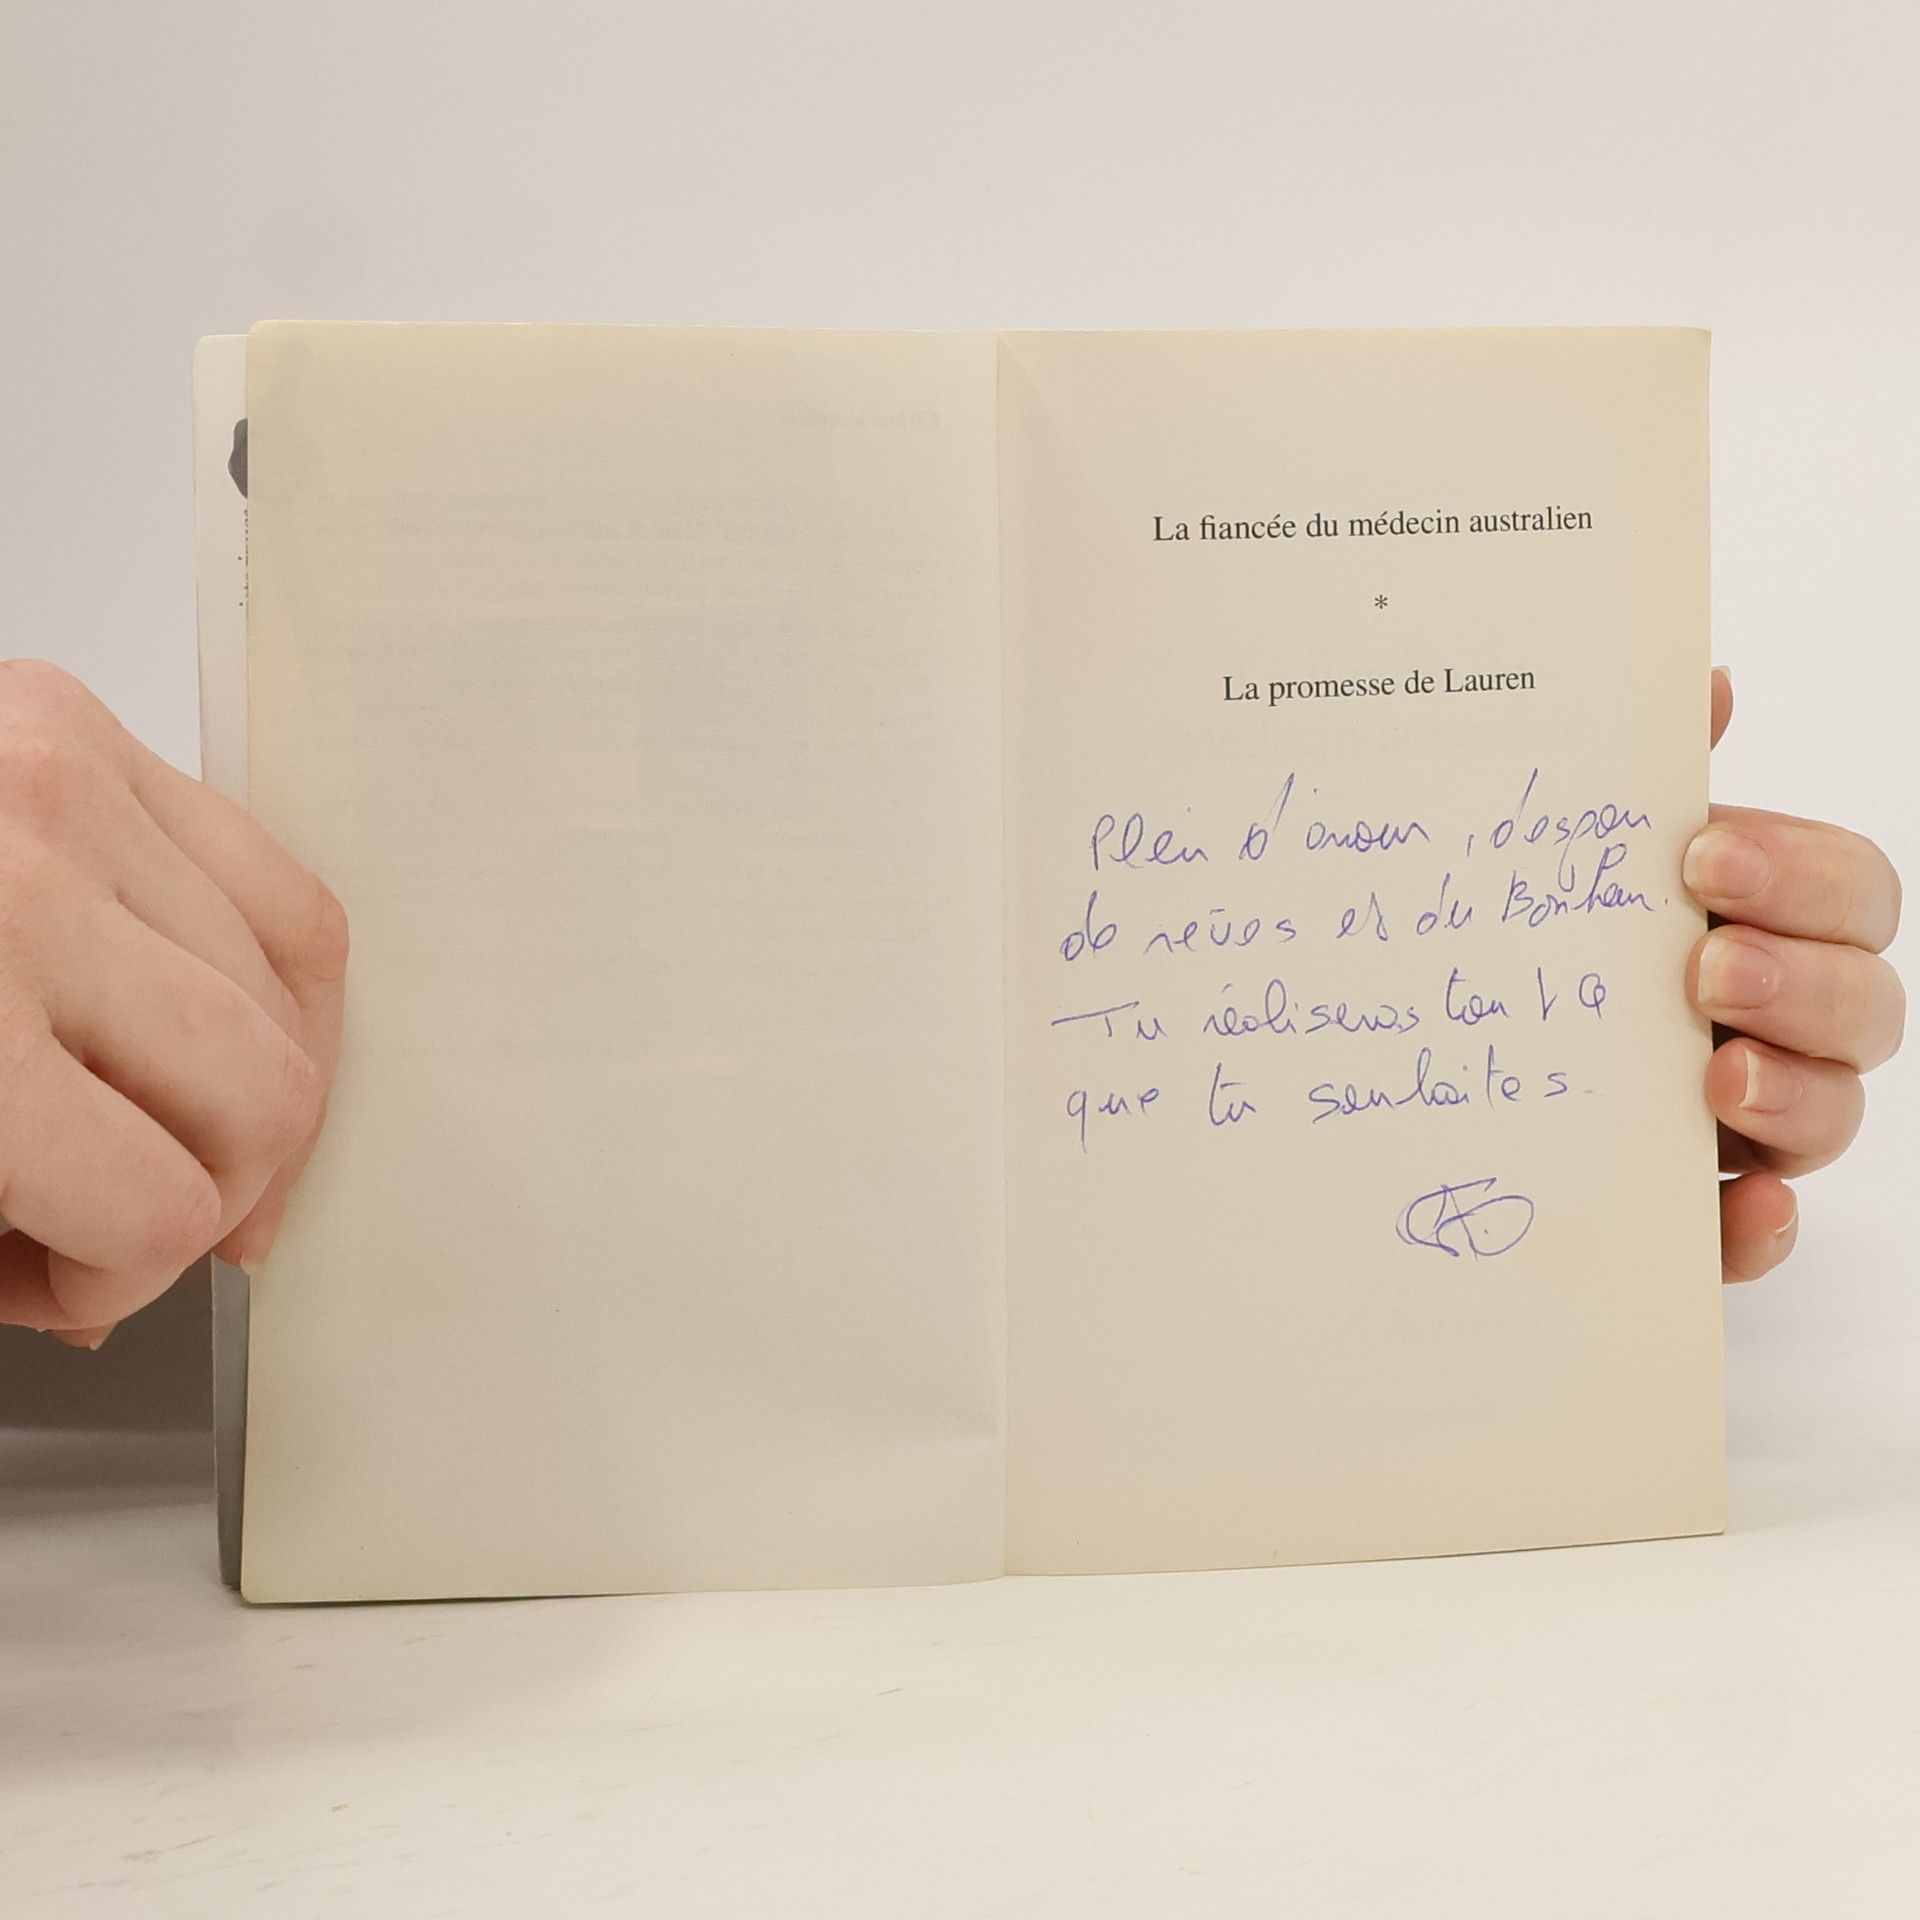 La fiancée du médecin australien
*
La promesse de Lauren
Plein d'amour, d'espoir
de rêves et du Bonheur.
Tu réaliseras tout ce
que tu souhaites.